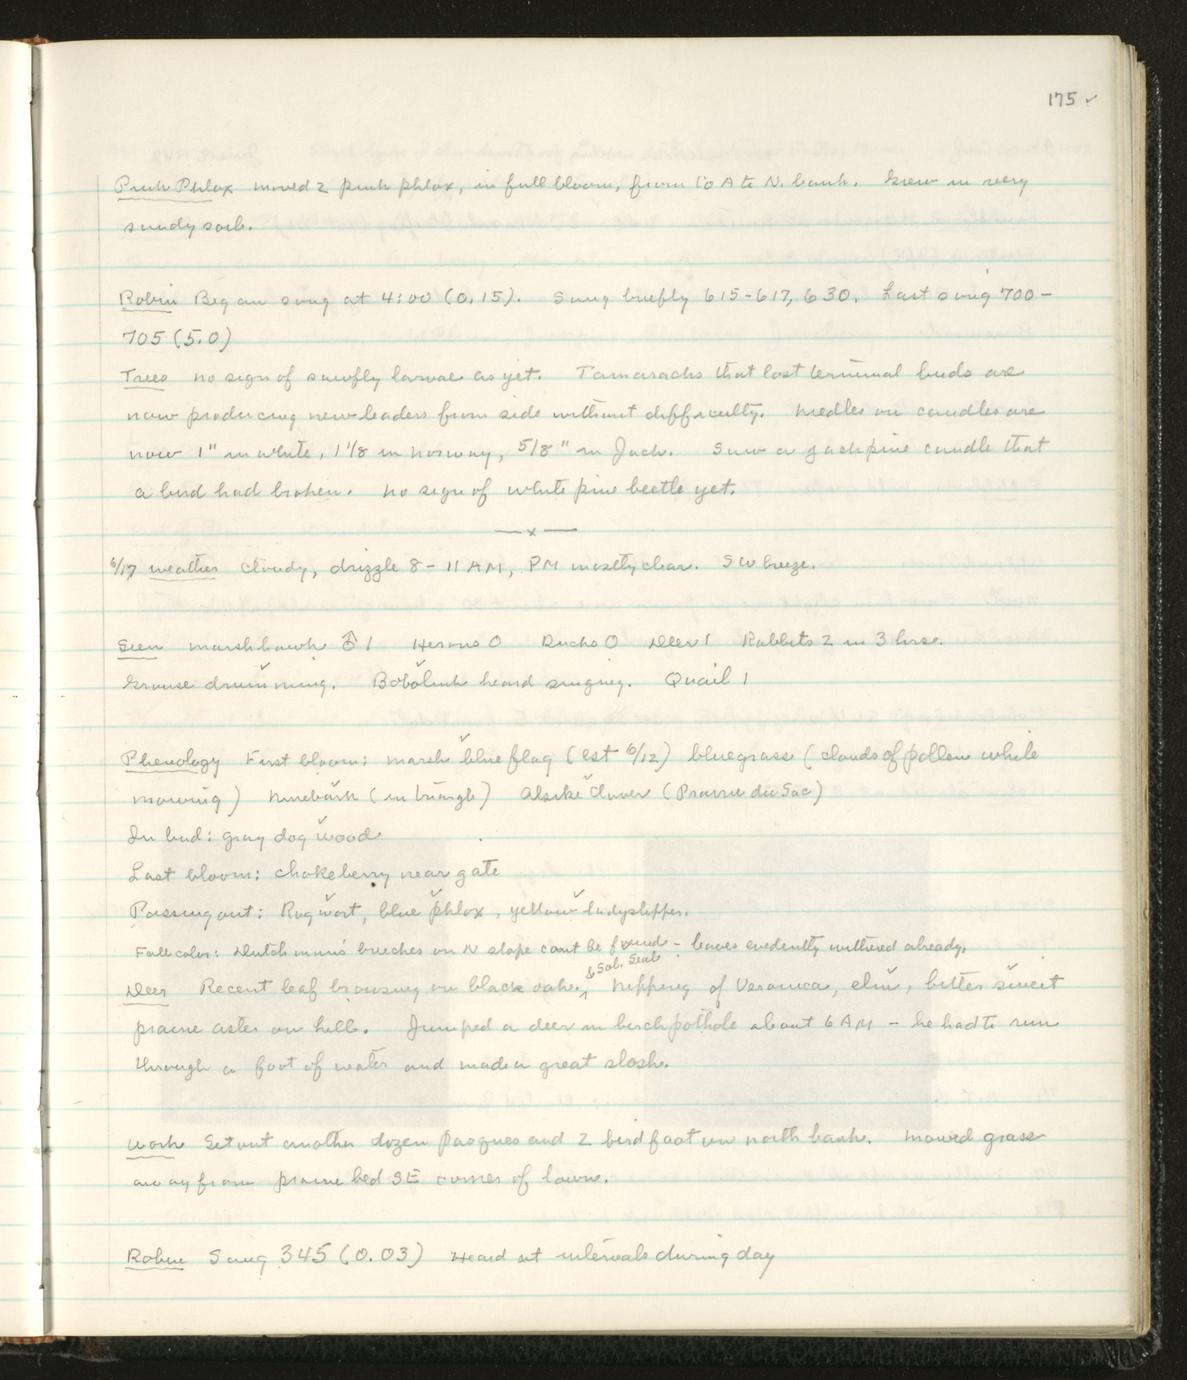 175 ✓
Pink Phlox moved 2 pink phlox, in full bloom, from Co A to N. bank. Grew in very
sandy soil.
Robin Began song at 4:00 (0.15). Sang briefly 615-617, 630. Last song 700-
705 (5.0)
Trees no sign of sawfly larvae as yet. Tamaracks that lost terminal buds are
now producing new leaders from side without difficulty. Needles on candles are
now 1" in white, 1 1/8 in norway, 5/8" in Jack. Saw a jackpine candle that
a bird had broken. No sign of white pine beetle yet.
—x—
6/17 weather Cloudy, drizzle 8-11 AM, PM mostly clear. SW breeze.
Seen marsh hawk ♂ 1 Herons 0 Ducks 0 Deer 1 Rabbits 2 in 3 hrs.
Grouse drumming. Bobolink heard singing. Quail 1
Phenology First bloom: marsh blue flag (est 6/12) bluegrass (clouds of pollen while
mowing) Ninebark (in triangle) Alsike Clover (Prairie du Sac)
In bud: gray dogwood
Last bloom: chokeberry near gate
Passing out: Ragwort, blue phlox, yellow ladyslipper.
Fall color: Dutchman's breeches on N slope cant be found - leaves evidently withered already.
& Sol. Seal
Deer Recent leaf browsing on black oak, nipping of Veronica, elm, bittersweet
prairie aster on hill. Jumped a deer in birch pothole about 6 AM - he had to run
through a foot of water and made a great slosh.
Work Set out another dozen Pasques and 2 birdfoot on north bank. Mowed grass
away from prairie bed SE corner of lawn.
Robin Sang 345 (0.03) Heard at intervals during day